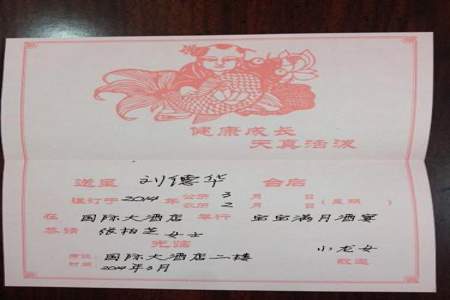 健康成长
天真活泼
送呈 刘德华 台启
谨订于2014年公历3月 日(星期 )
农历2月 日
在 国际大酒店 举行 宝宝满月酒宴
恭请 张柏芝 女士
光临
小龙女
敬邀
席设 国际大酒店二楼
时间 2014年3月